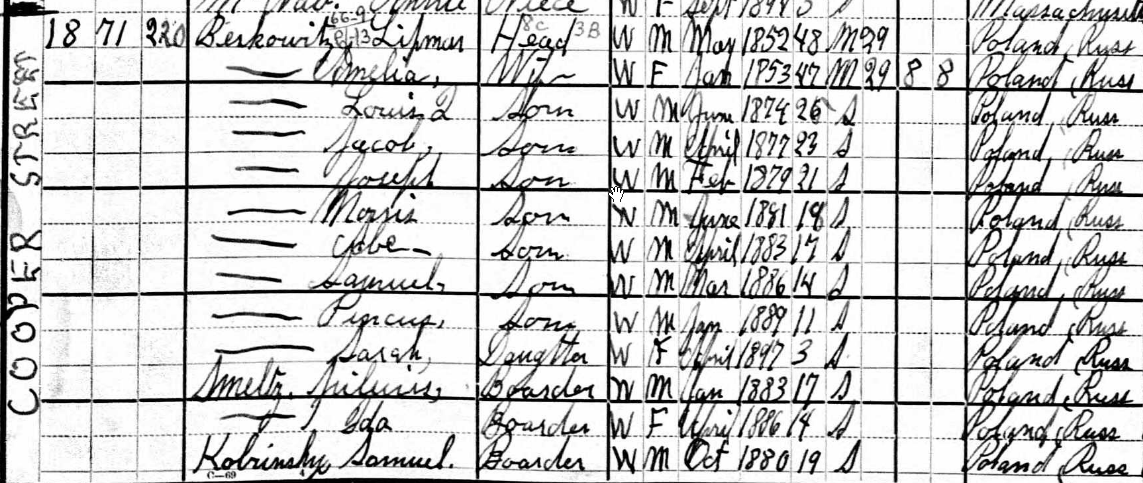 Niece W F Sept 1894 5 S Massachusett
COOPER STREET
66-9 8c 3B
18 71 220 Berkowitz, Lipman Head W M May 1852 48 M 29 Poland, Russ
— Amelia, Wife W F Jan 1853 47 M 29 8 8 Poland, Russ
— Louis Son W M June 1874 26 S Poland, Russ
— Jacob, Son W M April 1877 23 S Poland, Russ
— Joseph Son W M Feb 1879 21 S Poland, Russ
— Morris Son W M June 1881 18 S Poland, Russ
— Abe — Son W M April 1883 17 S Poland, Russ
— Samuel, Son W M Mar 1886 14 S Poland, Russ
— Pincus, Son W M Jan 1889 11 S Poland, Russ
— Sarah, Daughter W F April 1897 3 S Poland, Russ
Smeltz, Boarder W M Jan 1883 17 S Poland, Russ
— Ida Boarder W F April 1886 14 S Poland, Russ
Kobrinsky, Samuel. Boarder W M Oct 1880 19 S Poland, Russ
C-69